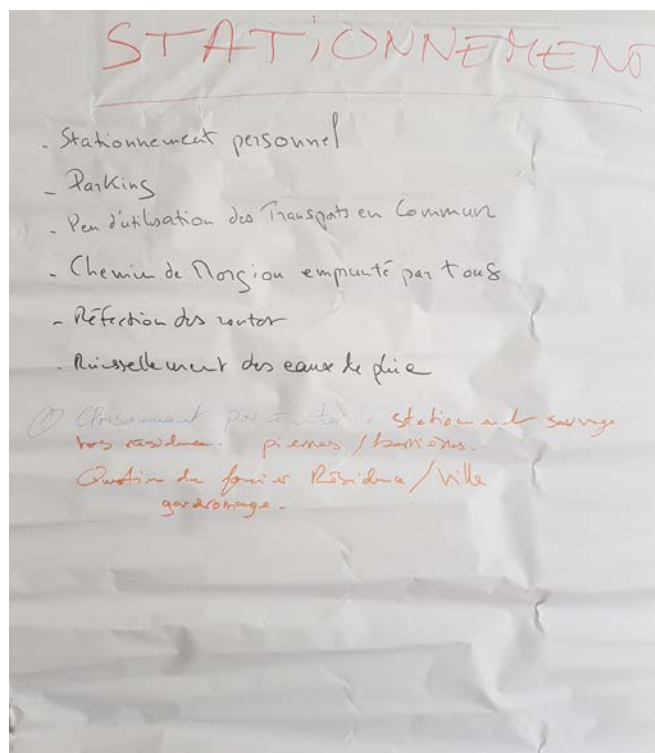 STATIONNEMENT
- Stationnement personnel
- Parkings
- Peu d'utilisation des Transports en Commun
- Chemin de Morgiou emprunté par tous
- Réfection des routes
- Ruissellement des eaux de pluie
① Cloisonnement pour éviter le stationnement sauvage
hors résidence. pierres / barrières.
Question du foncier Résidence / Ville
gardiennage.